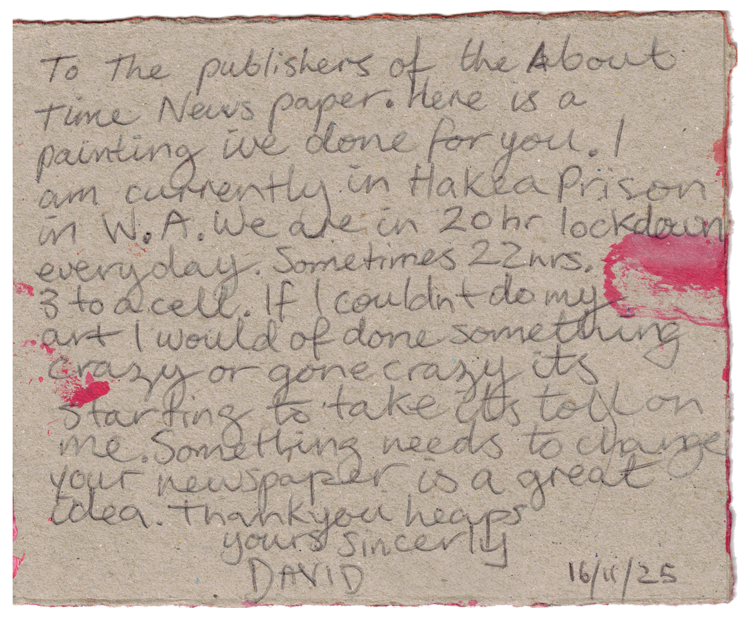 To The publishers of the About
time News paper. Here is a
painting ive done for you. I
am currently in Hakea Prison
in W.A. We are in 20hr lockdown
everyday. Sometimes 22hrs.
3 to a cell. If I couldnt do my
art I would of done something
crazy or gone crazy its
starting to take its toll on
me. Something needs to change
your newspaper is a great
idea. thankyou heaps
yours sincerly
DAVID 16/11/25